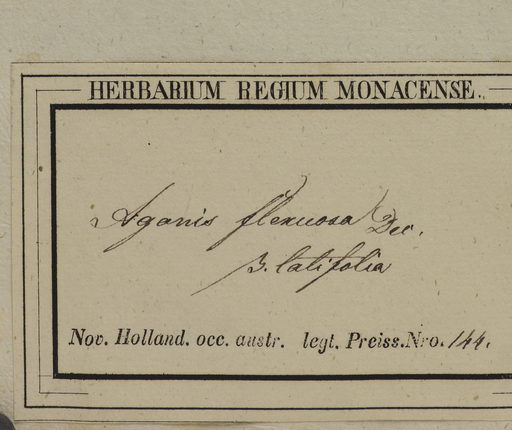 HERBARIUM REGIUM MONACENSE.
Agonis flexuosa Dec.
β. latifolia
Nov. Holland. occ. austr. legt. Preiss. Nro. 144.